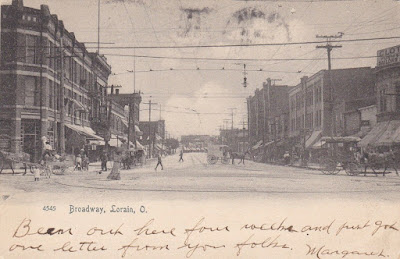 4545 Broadway, Lorain, O.
Been out here four weeks and just got
one letter from your folks. Margaret.